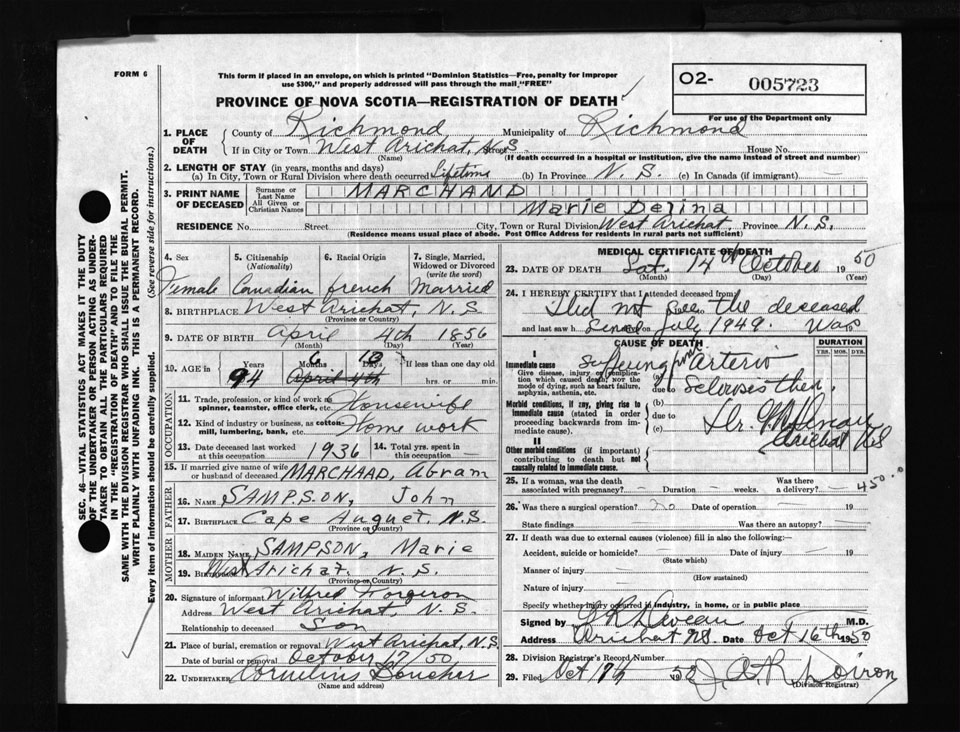 FORM 6
This form if placed in an envelope, on which is printed "Dominion Statistics—Free, penalty for improper
use $300," and properly addressed will pass through the mail, "FREE"
O2- 005723
For use of the Department only
PROVINCE OF NOVA SCOTIA—REGISTRATION OF DEATH
1. PLACE OF DEATH { County of Richmond Municipality of Richmond
If in City or Town West Arichat, N.S. Street House No.
(Name) (If death occurred in a hospital or institution, give the name instead of street and number)
2. LENGTH OF STAY (in years, months and days)
(a) In City, Town or Rural Division where death occurred Lifetime (b) In Province N. S. (c) In Canada (if immigrant) —
3. PRINT NAME OF DECEASED { Surname or Last Name MARCHAND
All Given or Christian Names Marie Delina
RESIDENCE No. Street City, Town or Rural Division West Arichat, Province N.S.
(Residence means usual place of abode. Post Office Address for residents in rural parts not sufficient)
4. Sex 5. Citizenship (Nationality) 6. Racial Origin 7. Single, Married, Widowed or Divorced (write the word)
Female Canadian french Married
8. BIRTHPLACE West Arichat, N.S
(Province or Country)
9. DATE OF BIRTH April 4th 1856
(Month) (Day) (Year)
10. AGE in { Years Months Days If less than one day old
94 6 10 hrs. or min.
April 4th
OCCUPATION
11. Trade, profession, or kind of work as spinner, teamster, office clerk, etc. Housewife
12. Kind of industry or business, as cotton-mill, lumbering, bank, etc. Home work
13. Date deceased last worked at this occupation 1936 14. Total yrs. spent in this occupation —
15. If married give name of wife or husband of deceased MARCHAAD, Abram
FATHER
16. NAME SAMPSON, John
17. BIRTHPLACE Cape Auguet, N.S.
(Province or Country)
MOTHER
18. MAIDEN NAME SAMPSON, Marie
19. BIRTHPLACE West Arichat. N.S.
(Province or Country)
20. Signature of informant Wilfred Forgeron
Address West Arichat, N.S.
Relationship to deceased Son
21. Place of burial, cremation or removal West Arichat, N.S.
Date of burial or removal October 17/50
22. UNDERTAKER Cornelius Boucher
(Name and address)
MEDICAL CERTIFICATE OF DEATH
23. DATE OF DEATH Sat. 14 of October 1950
(Month) (Day) (Year)
24. I HEREBY CERTIFY that I attended deceased from
I did not see the deceased
and last saw h since on July 1949. Was 19
CAUSE OF DEATH DURATION
YRS. MOS. DYS.
I
Immediate cause (a) suffering from arterio
Give disease, injury or complication which caused death, not the mode of dying, such as heart failure, asphyxia, asthenia, etc.
due to sclerosis then.
Morbid conditions, if any, giving rise to immediate cause (stated in order proceeding backwards from immediate cause).
(b)
due to Dr.
(c) Arichat NS
II
Other morbid conditions (if important) contributing to death but not causally related to immediate cause.
25. If a woman, was the death associated with pregnancy? — Duration — weeks. Was there a delivery? —
450
26. Was there a surgical operation? no Date of operation — 19
State findings — Was there an autopsy? —
27. If death was due to external causes (violence) fill in also the following:—
Accident, suicide or homicide? — Date of injury — 19
(State which)
Manner of injury —
(How sustained)
Nature of injury —
Specify whether injury occurred in industry, in home, or in public place
Signed by M.D.
Address Arichat NS. Date Oct 16th 1950
28. Division Registrar's Record Number
29. Filed Oct 17th 1950
(Division Registrar)
SEC. 46—VITAL STATISTICS ACT MAKES IT THE DUTY
OF THE UNDERTAKER OR PERSON ACTING AS UNDER-
TAKER TO OBTAIN ALL THE PARTICULARS REQUIRED
IN THE "REGISTRATION OF DEATH" AND TO FILE THE
SAME WITH THE DIVISION REGISTRAR WHO SHALL ISSUE THE BURIAL PERMIT.
WRITE PLAINLY WITH UNFADING INK. THIS IS A PERMANENT RECORD.
Every item of information should be carefully supplied. (See reverse side for instructions.)